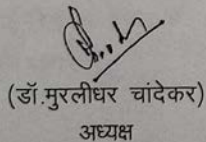 (डॉ.मुरलीधर चांदेकर)
अध्यक्ष